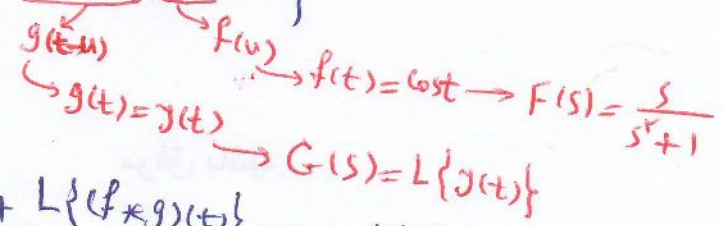 g(t-u) f(u)
f(t)=cost → F(s)= s/(s²+1)
g(t)=y(t)
G(s)=L{y(t)}
+ L{(f*g)(t)}